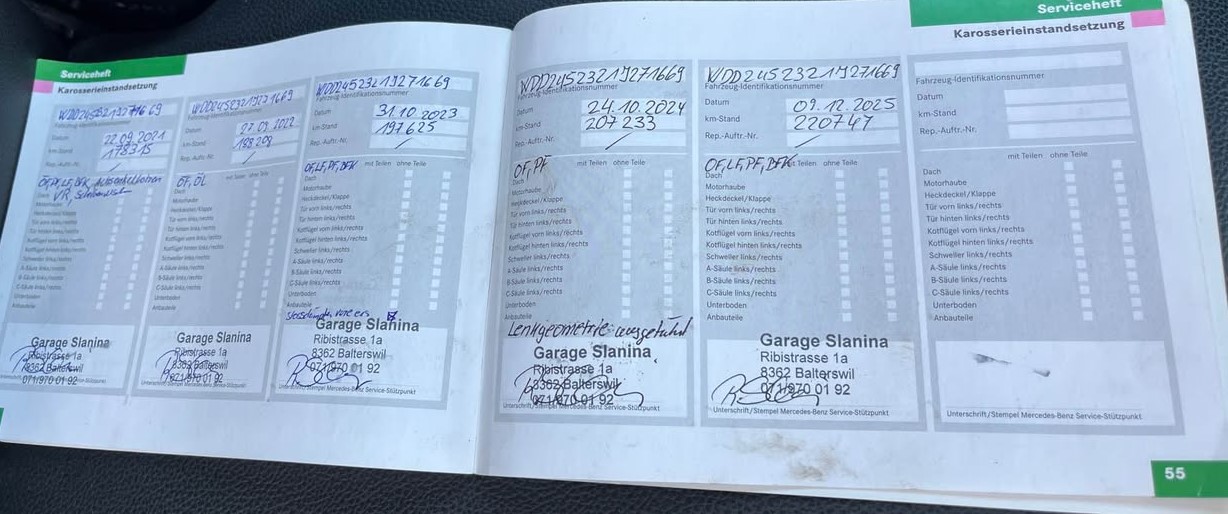 Serviceheft
Karosserieinstandsetzung
WDD2452321J271669
Fahrzeug-Identifikationsnummer
Datum 22.09.2021
km-Stand 178315
Rep.-Auftr.-Nr.
Dach
Motorhaube
Heckdeckel/Klappe
Tür vorn links/rechts
Tür hinten links/rechts
Kotflügel vorn links/rechts
Kotflügel hinten links/rechts
Schweller links/rechts
A-Säule links/rechts
B-Säule links/rechts
C-Säule links/rechts
Unterboden
Anbauteile
Garage Slanina
Ribistrasse 1a
8362 Balterswil
071/970 01 92
WDD2452321J271669
Fahrzeug-Identifikationsnummer
Datum
km-Stand
Rep.-Auftr.-Nr.
OF, ÖL
mit Teilen ohne Teile
Dach
Motorhaube
Heckdeckel/Klappe
Tür vorn links/rechts
Tür hinten links/rechts
Kotflügel vorn links/rechts
Kotflügel hinten links/rechts
Schweller links/rechts
A-Säule links/rechts
B-Säule links/rechts
C-Säule links/rechts
Unterboden
Anbauteile
Garage Slanina
Ribistrasse 1a
8362 Balterswil
071/970 01 92
WDD2452321J271669
Fahrzeug-Identifikationsnummer
Datum 31.10.2023
km-Stand 197625
Rep.-Auftr.-Nr.
OF, LF, PF, BFK mit Teilen ohne Teile
Dach
Motorhaube
Heckdeckel/Klappe
Tür vorn links/rechts
Tür hinten links/rechts
Kotflügel vorn links/rechts
Kotflügel hinten links/rechts
Schweller links/rechts
A-Säule links/rechts
B-Säule links/rechts
C-Säule links/rechts
Unterboden
Anbauteile
Garage Slanina
Ribistrasse 1a
8362 Balterswil
071/970 01 92
Unterschrift/Stempel Mercedes-Benz Service-Stützpunkt
WDD2452321J271669
Fahrzeug-Identifikationsnummer
Datum 24.10.2024
km-Stand 207 233
Rep.-Auftr.-Nr.
OF, PF mit Teilen ohne Teile
Dach
Motorhaube
Heckdeckel/Klappe
Tür vorn links/rechts
Tür hinten links/rechts
Kotflügel vorn links/rechts
Kotflügel hinten links/rechts
Schweller links/rechts
A-Säule links/rechts
B-Säule links/rechts
C-Säule links/rechts
Unterboden
Anbauteile
Lenkgeometrie ausgeführt
Garage Slanina
Ribistrasse 1a
8362 Balterswil
071/970 01 92
Unterschrift/Stempel Mercedes-Benz Service-Stützpunkt
WDD2452321J271669
Fahrzeug-Identifikationsnummer
Datum 09.12.2025
km-Stand 220747
Rep.-Auftr.-Nr.
OF, LF, PF, BFK mit Teilen ohne Teile
Dach
Motorhaube
Heckdeckel/Klappe
Tür vorn links/rechts
Tür hinten links/rechts
Kotflügel vorn links/rechts
Kotflügel hinten links/rechts
Schweller links/rechts
A-Säule links/rechts
B-Säule links/rechts
C-Säule links/rechts
Unterboden
Anbauteile
Garage Slanina
Ribistrasse 1a
8362 Balterswil
071/970 01 92
Unterschrift/Stempel Mercedes-Benz Service-Stützpunkt
Serviceheft
Karosserieinstandsetzung
Fahrzeug-Identifikationsnummer
Datum
km-Stand
Rep.-Auftr.-Nr.
mit Teilen ohne Teile
Dach
Motorhaube
Heckdeckel/Klappe
Tür vorn links/rechts
Tür hinten links/rechts
Kotflügel vorn links/rechts
Kotflügel hinten links/rechts
Schweller links/rechts
A-Säule links/rechts
B-Säule links/rechts
C-Säule links/rechts
Unterboden
Anbauteile
Unterschrift/Stempel Mercedes-Benz Service-Stützpunkt
55